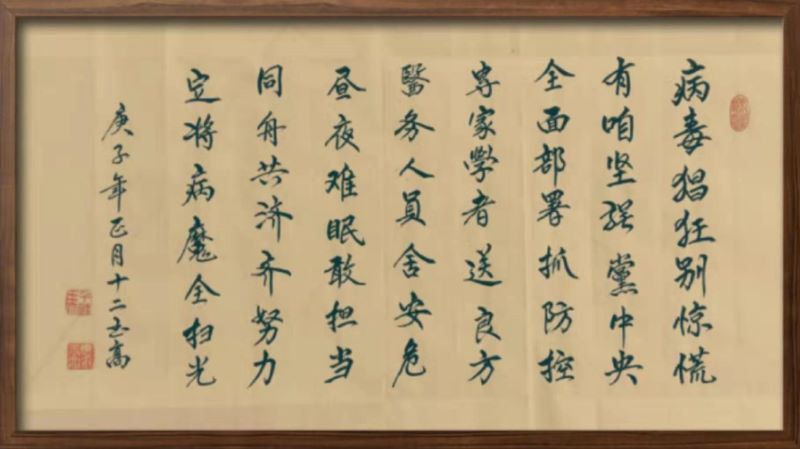 病毒猖狂别惊慌
有咱坚强黨中央
全面部署抓防控
専家學者送良方
醫务人員舍安危
昼夜难眠敢担当
同舟共济齐努力
定将病魔全扫光
庚子年正月十二玉高